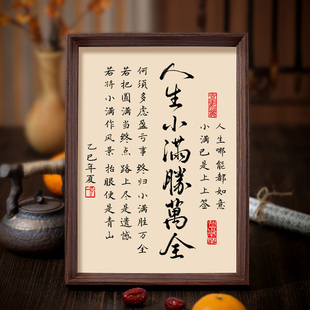 人生哪能都如意
小满已是上上签
人生小滿勝萬全
何须多虑盈亏事 终归小满胜万全
若把圆满当终点 路上尽是遗憾
若将小满作风景 抬眼便是青山
乙巳年夏